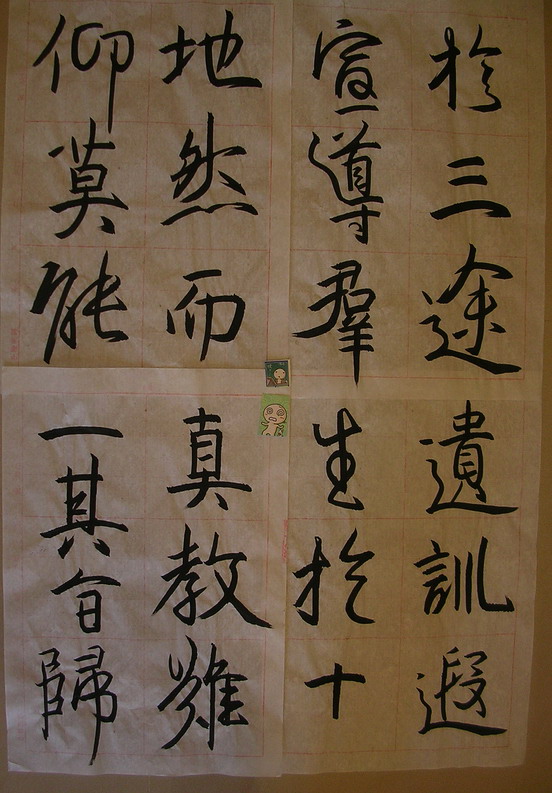 於三途遺訓遐
宣導羣生於十
地然而真教難
仰莫能一其旨歸